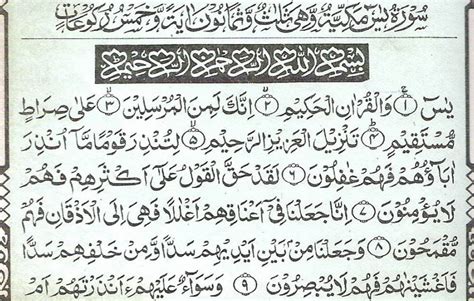 سُوْرَةُ يٰسٓ مَكِّيَّةٌ وَّهِيَ ثَلٰثٌ وَّثَمَانُوْنَ اٰيَةً وَّخَمْسُ رُكُوْعَاتٍ
بِسْمِ اللّٰهِ الرَّحْمٰنِ الرَّحِيْمِ
يٰسٓ ۝۱ وَالْقُرْاٰنِ الْحَكِيْمِ ۝۲ اِنَّكَ لَمِنَ الْمُرْسَلِيْنَ ۝۳ عَلٰى صِرَاطٍ
مُّسْتَقِيْمٍ ۝۴ تَنْزِيْلَ الْعَزِيْزِ الرَّحِيْمِ ۝۵ لِتُنْذِرَ قَوْمًا مَّاۤ اُنْذِرَ
اٰبَآؤُهُمْ فَهُمْ غٰفِلُوْنَ ۝۶ لَقَدْ حَقَّ الْقَوْلُ عَلٰۤى اَكْثَرِهِمْ فَهُمْ
لَا يُؤْمِنُوْنَ ۝۷ اِنَّا جَعَلْنَا فِيْۤ اَعْنَاقِهِمْ اَغْلٰلًا فَهِيَ اِلَى الْاَذْقَانِ فَهُمْ
مُّقْمَحُوْنَ ۝۸ وَجَعَلْنَا مِنْۢ بَيْنِ اَيْدِيْهِمْ سَدًّا وَّمِنْ خَلْفِهِمْ سَدًّا
فَاَغْشَيْنٰهُمْ فَهُمْ لَا يُبْصِرُوْنَ ۝۹ وَسَوَآءٌ عَلَيْهِمْ ءَاَنْذَرْتَهُمْ اَمْ